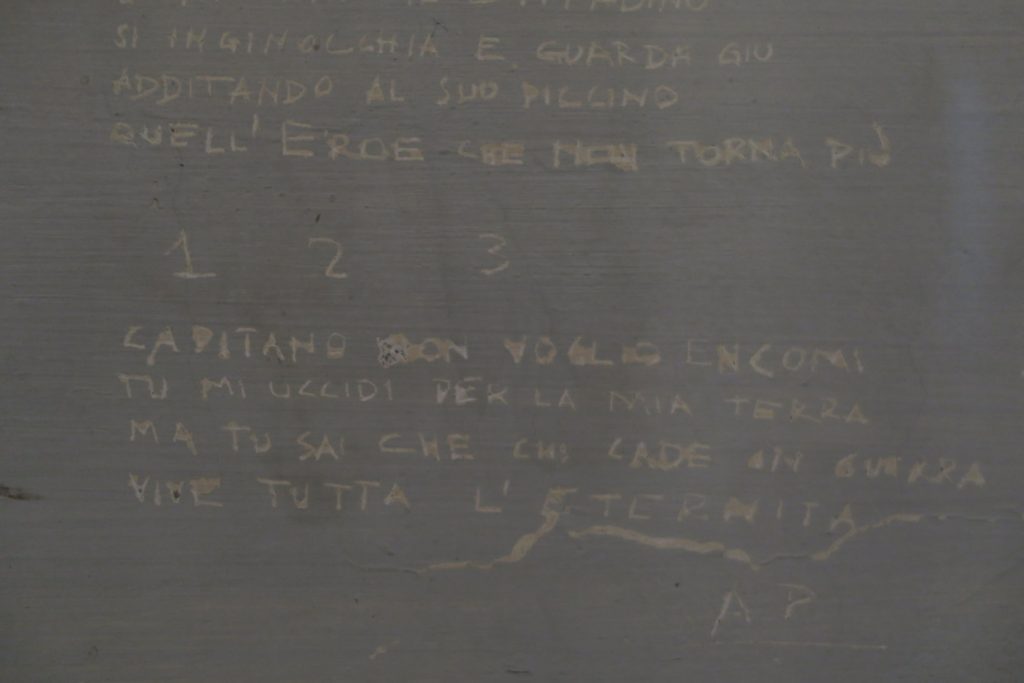 SI INGINOCCHIA E GUARDA GIU
ADDITANDO AL SUO PICCINO
QUELL' EROE CHE NON TORNA PIÙ
1 2 3
CAPITANO NON VOGLIO ENCOMI
TU MI UCCIDI PER LA MIA TERRA
MA TU SAI CHE CHI CADE IN GUERRA
VIVE TUTTA L'ETERNITA
A P